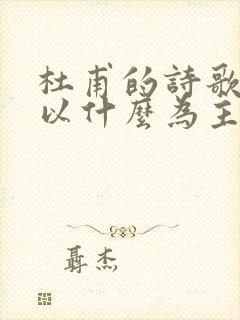 杜甫的詩歌
以什麼為主
聶杰